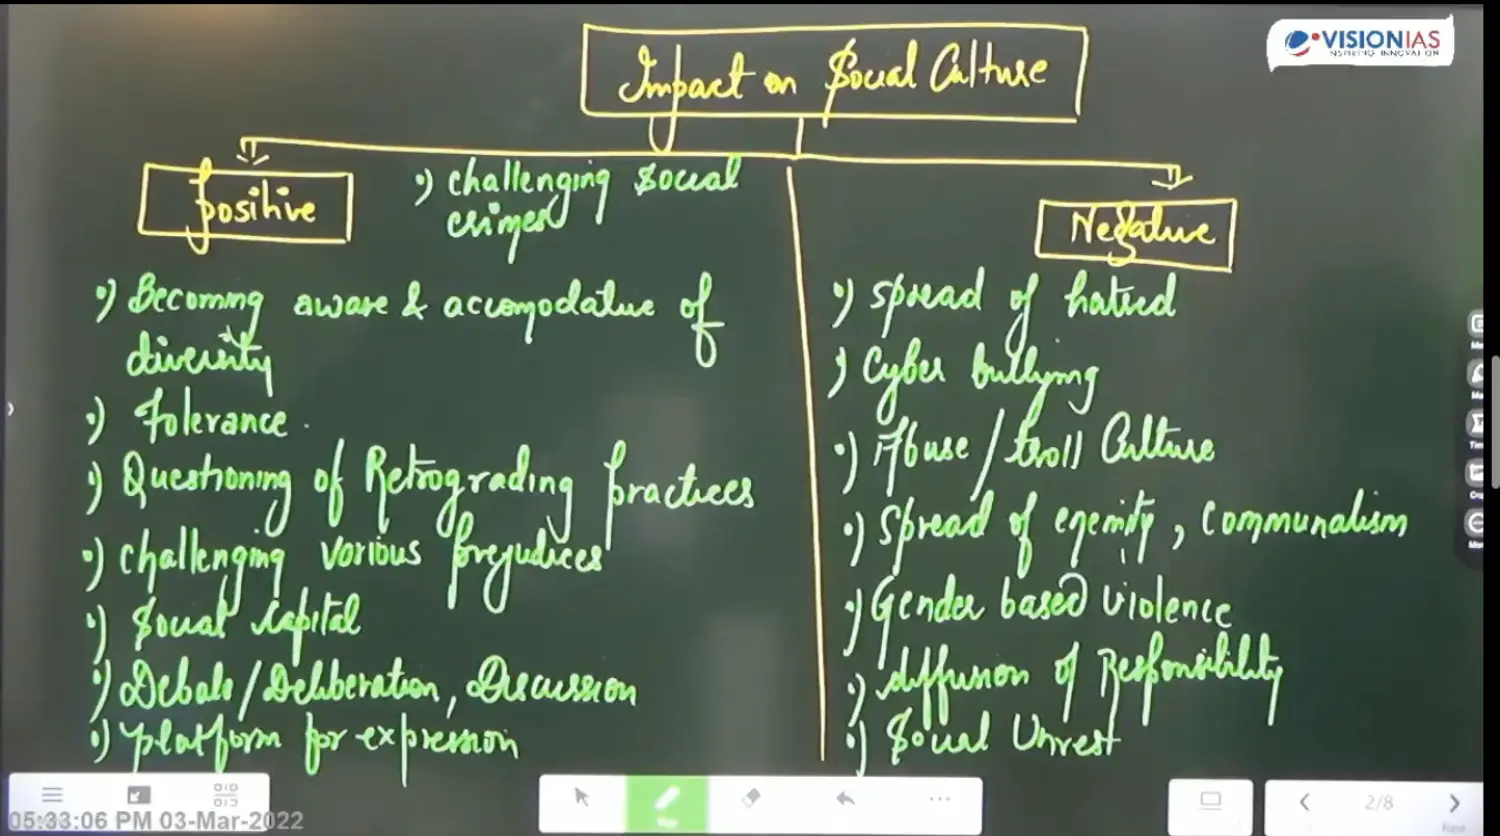 VISIONIAS
INSPIRING INNOVATION
Impact on Social Culture
Positive
•) challenging social
crimes
•) Becoming aware & accomodative of
diversity
•) Tolerance.
•) Questioning of Retrograding practices
•) challenging various prejudices
•) Social capital
•) Debate/Deliberation, Discussion
•) Platform for expression
Negative
•) Spread of hatred
•) Cyber bullying
•) Abuse / troll Culture
•) Spread of enemity, communalism
•) Gender based violence
•) diffusion of Responsibility
•) Social Unrest
05:33:06 PM 03-Mar-2022
2/8